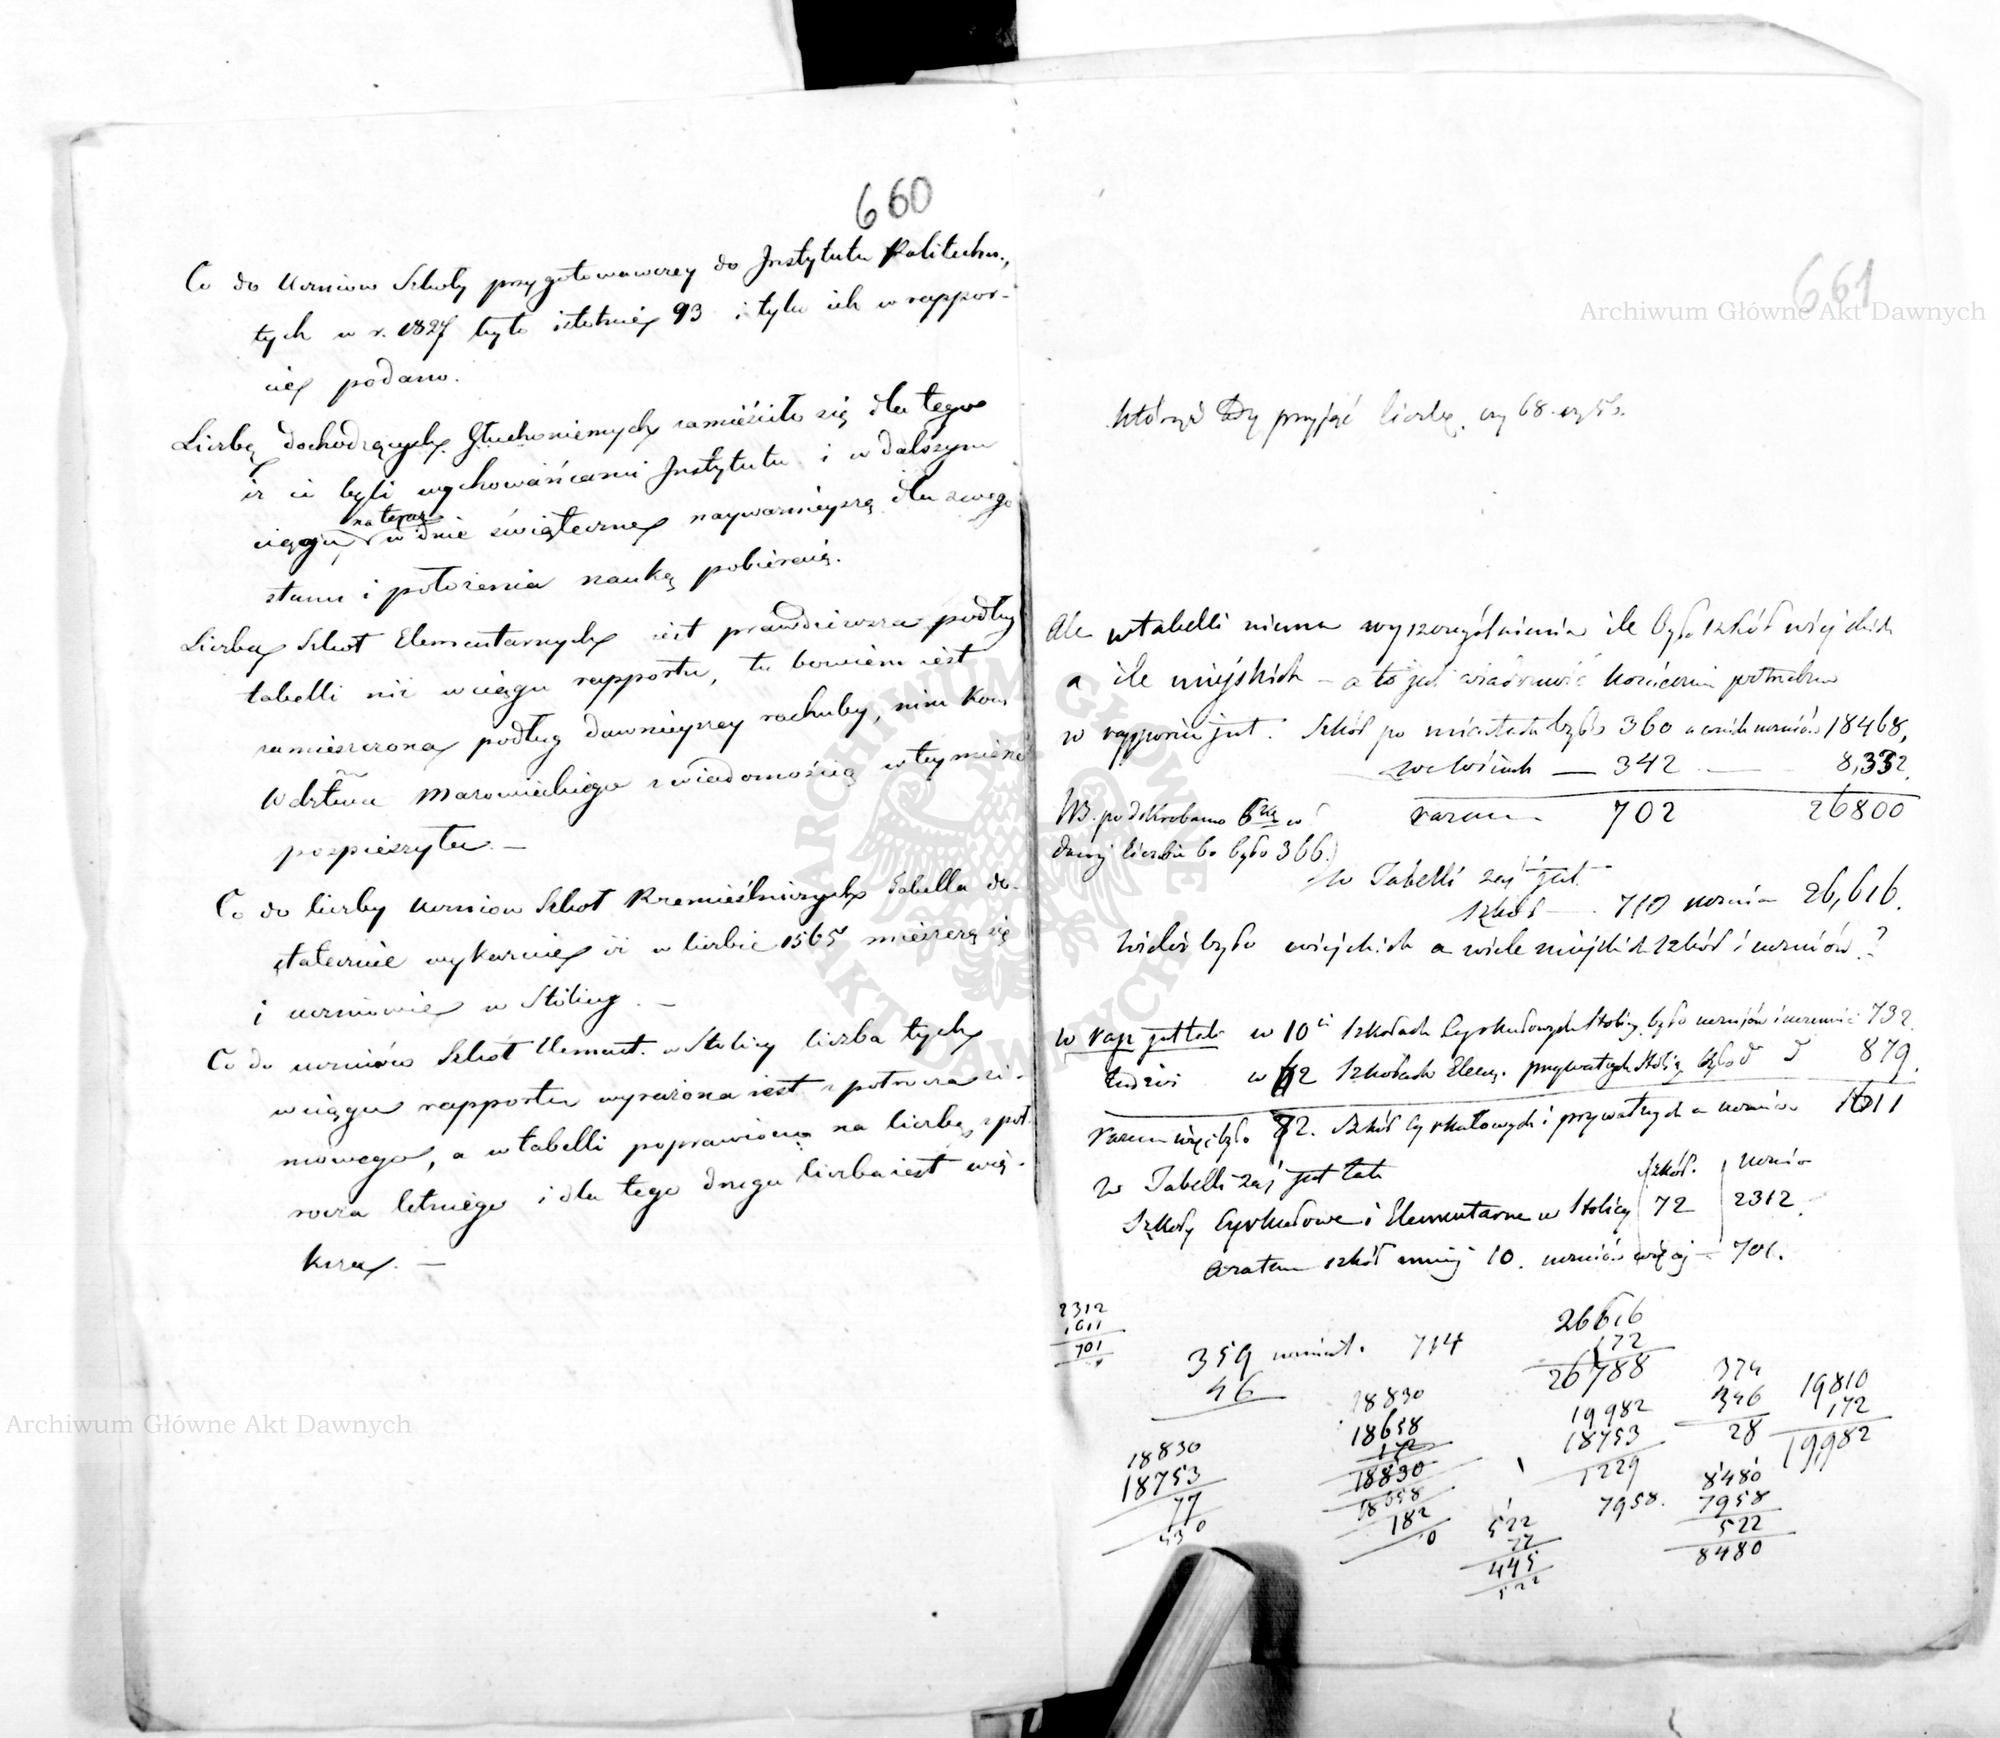 660
Co do uczniow Szkoły przygotowawczey do Instytutu Politechn.,
tych w r. 1827 było istotnie 93 i tylu ich w rappor-
cie podano.
Liczbę dochodzących Głuchoniemych zamieściło się dla tego
iż ci byli wychowańcami Instytutu i w dalszym
na teraz
ciągu, w dnie świąteczne naywazniejszą dla swego
stanu i położenia naukę pobieraią.
Liczba Szkoł Elementarnych iest prawdziwsza podług
tabelli niż w ciągu rapportu, tu bowiem iest
zamieszczona podług dawnieyszey rachuby, nim Kom
Wdztwa Mazowieckiego z wiadomością w tey mierze
pospieszyła. —
Co do liczby uczniow Szkoł Rzemieślniczych tabella do-
statecznie wykazuie iż w liczbie 1565 mieszczą się
i uczniowie w Stolicy. —
Co do uczniów Szkół Element. w Stolicy liczba tych
w ciągu rapportu wyrażona iest z pułrocza zi-
mowego, a w tabelli poprawiona na liczbę z puł-
rocza letniego i dla tego druga liczba iest wię-
ksza. —
661
Archiwum Główne Akt Dawnych
któraż tedy przyjąć liczbę, czy 68 czy
Ale w tabelli niema wyszczególnienia ile było szkół wiejskich
a ile miejskich — a to jest wiadomość koniecznie potrzebna
w rapporcie jest. Szkół po miastach było 360 a w nich uczniów 18468,
po wsiach — 342 — 8,332
razem 702 26800
NB. podskrobano 6tkę w
dawnej liczbie bo było 366.)
w Tabelli zaś jest
Szkół — 710 uczniów 26,616.
Wieleż było wiejskich a wiele miejskich szkół i uczniów?
w rap. jest tak w 10ciu Szkołach Cyrkułowych Stolicy było uczniów i uczennic 732.
tudzież w 72 Szkołach Elem. prywatnych Stolicy było 879.
razem więc było 82. Szkół Cyrkułowych i prywatnych a uczniów 1611
w Tabelli zaś jest tak szkół. uczniów
Szkoły Cyrkułowe i Elementarne w Stolicy 72 2312
Zatem szkół mniej 10. uczniów więcej — 701.
2312
1611
701
359 714
46
26616
172
26788
18830
18753
77
530
18830
18658
172
18830
18658
182
0
19982
18753
1229
7958.
522
77
445
522
374
346
28
8480
7958
522
8480
19810
172
19982
Archiwum Główne Akt Dawnych
ARCHIWUM GŁÓWNE AKT DAWNYCH